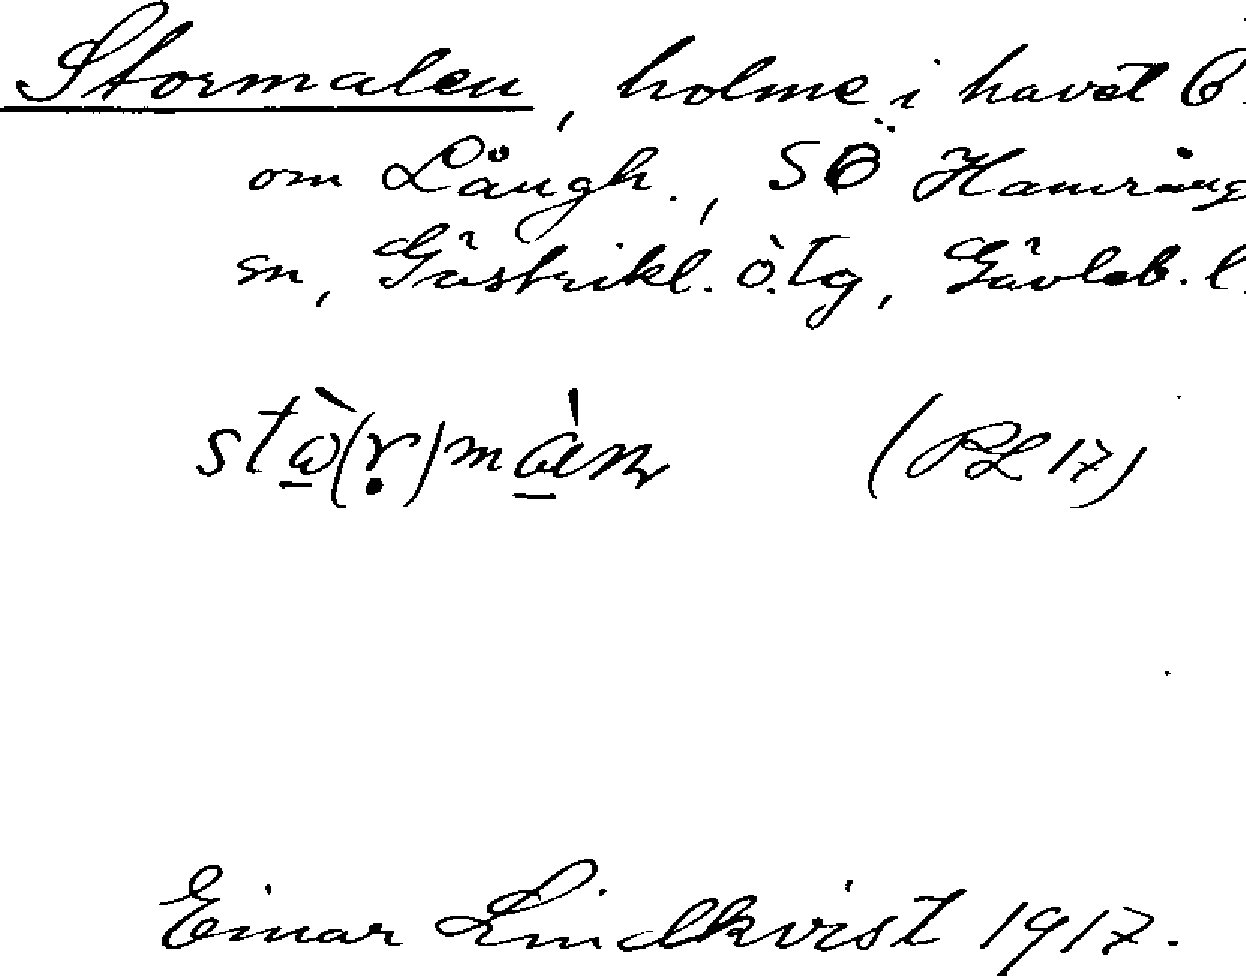 Stormalen, holme i havet Ö.
om Långh., SÖ Hamrång
sn, Gästrikl. ö. tg, Gävleb. l.
(PL 17)
Einar Lindkvist 1917.